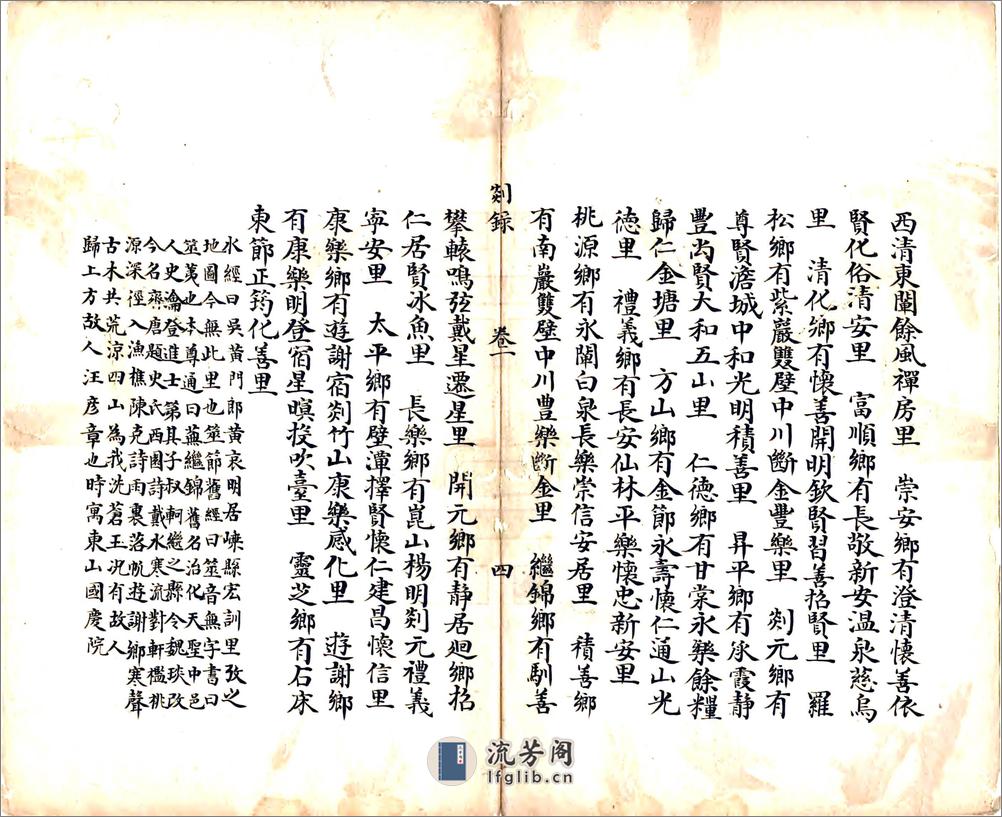 西清東闈餘風禪房里　崇安鄉有澄清懷善依
賢化俗清安里　富順鄉有長敬新安温泉慈烏
里　清化鄉有懷善開明欽賢習善招賢里　羅
松鄉有紫巖雙壁中川斷金豐樂里　剡元鄉有
尊賢澹城中和光明積善里　昇平鄉有永霞靜
豐尚賢大和五山里　仁德鄉有甘棠永樂餘糧
歸仁金塘里　方山鄉有金節永壽懷仁通山光
德里　禮義鄉有長安仙林平樂懷忠新安里
桃源鄉有永闡白泉長樂崇信安居里　積善鄉
有南巖雙壁中川豊樂斷金里　繼錦鄉有馴善
剡録　卷一　四
攀轅鳴弦戴星遷星里　開元鄉有靜居廻鄉招
仁居賢冰魚里　長樂鄉有崑山楊明剡元禮義
寧安里　太平鄉有壁潭擇賢懷仁建昌懷信里
康樂鄉有遊謝宿剡竹山康樂感化里　遊謝鄉
有康樂明登宿星暝投吹臺里　靈芝鄉有石床
東節正筠化善里
水經曰吳黃門郎黃哀明居嵊縣宏訓里攷之
地圖今無此里也筮節舊經曰筮音無字書曰
筮荑也本尊通曰薰繼錦舊名治化天聖中邑
人史瀹登進士第其子叔軻繼之縣令魏琰改
今名齊唐題史氏西園詩戴水寒流對軒檻桃
源深徑入漁樵陳克詩雨裏落帆遊謝鄉寒聲
古木共荒涼四山為我洗蒼玉況有故人
歸上方故人汪彦章也時寓東山國慶院
流芳阁
lfglib.cn